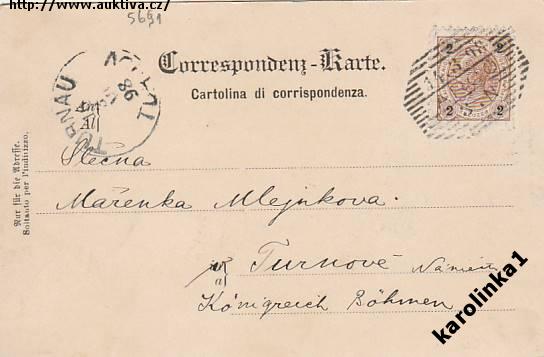 www.auktiva.cz/
5691
Correspondenz-Karte.
Cartolina di corrispondenza.
An
Al
TURNAU
TURNOV
98
2 2
2 2
Nur für die Adresse.
Soltanto per l'indirizzo.
Slečna
Mařenka Mlejnkova.
Turnově
Königreich Böhmen
karolinka1